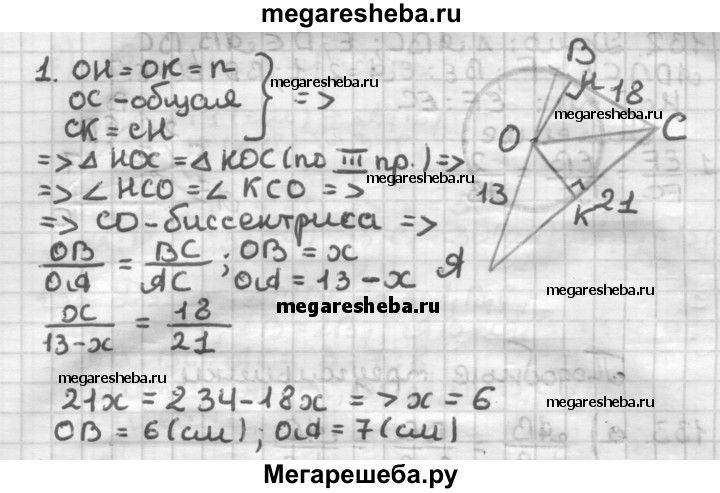 megaresheba.ru
1. OH = OK = r
OC - общая
CK = CH
} =>
megaresheba.ru
=> △ HOC = △ KOC (по III пр.) =>
megaresheba.ru
=> ∠ HCO = ∠ KCO =>
=> CO - биссектриса =>
OB/OA = BC/AC ; OB = x
OA = 13 - x
megaresheba.ru
x/(13-x) = 18/21
megaresheba.ru
21x = 234 - 18x => x = 6
OB = 6 (см) ; OA = 7 (см)
B
H
18
megaresheba.ru
O
C
13
K
21
A
megaresheba.ru
megaresheba.ru
Мегарешеба.ру